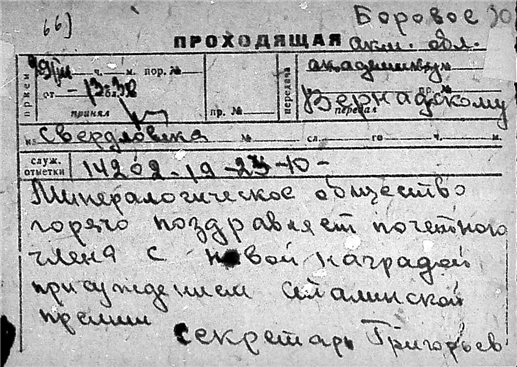 66)
Боровое
ПРОХОДЯЩАЯ акм. обл.
прием
ч. м. пор. №
от
принял
пр. №
передача
академику
Вернадскому
передал
из Свердловска № сл. го. ч. м.
служ. отметки 14202 - 19 - 23 - 10 -
Минералогическое общество
горячо поздравляет почетного
члена с новой наградой
присуждением сталинской
премии
секретарь Григорьев